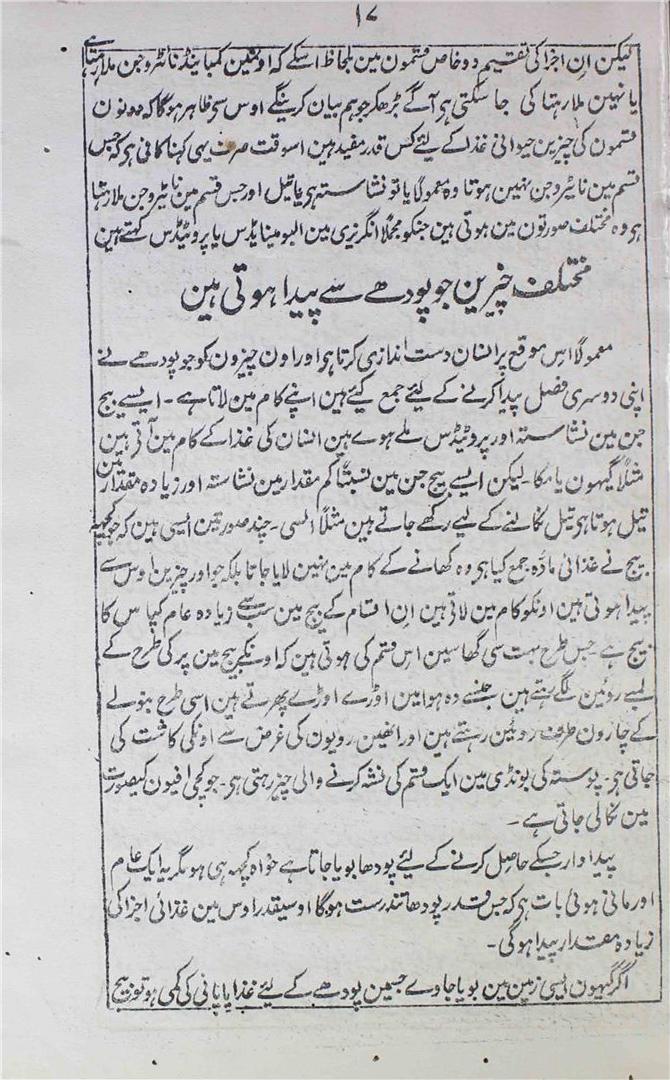 ۱۷
لیکن اِن اجزا کی تقسیم دو خاص قسمون مین بلحاظ اسکے کہ اونمین کمبایینڈ نائٹروجن ملا رہتا ہے
یا نہین ملا رہتا کی جا سکتی ہی آگے بڑھکر جو ہم بیان کرینگے اوس سی ظاہر ہوگا کہ دونون
قسمون کی چیزین حیوانی غذا کے لیئے کس قدر مفید ہین اسوقت صرف یہی کہنا کافی ہی کہ جس
قسم مین نائٹروجن نہین ہوتا وہ معمولًا یا تو نشاستہ ہی یا تیل اور جس قسم مین نائٹروجن ملا رہتا
ہی وہ مختلف صورتون مین ہوتی ہین جنکو مجملًا انگریزی مین البومینایڈس یا پروٹیڈس کہتے ہین
مختلف چیزین جو پودھے سے پیدا ہوتی ہین
معمولًا اس موقع پر انسان دست اندازی کرتا ہی اور اون چیزون کو جو پودھے نے
اپنی دوسری فصل پیدا کرنے کے لیئے جمع کیئے ہین اپنے کام مین لاتا ہے ۔ ایسے بیج
جن مین نشاستہ اور پروٹیڈس ملے ہوے ہین انسان کی غذا کے کام مین آتی ہین
مثلًا گیہون یا مکا ۔ لیکن ایسے بیج جن مین نسبتًا کم مقدار مین نشاستہ اور زیادہ مقدار مین
تیل ہوتا ہی تیل نکالنے کے لیے رکھے جاتے ہین مثلًا السی ۔ چند صورتین ایسی ہین کہ جو کچھہ
بیج نے غذائی مادّہ جمع کیا ہی وہ کھانے کے کام مین نہین لایا جاتا بلکہ جو اور چیزین اوس سے
پیدا ہوتی ہین اونکو کام مین لاتی ہین اِن اقسام کے بیج مین سب سے زیادہ عام کپاس کا
بیج ہے ۔ جس طرح بہت سی گھاسین اس قسم کی ہوتی ہین کہ اونکے بیج مین پر کی طرح کے
لمبے روئین لگے رہتے ہین جنسے وہ ہوا مین اوڑے اوڑے پھرتے ہین اسی طرح بنولے
کے چارون طرف روئین رہتے ہین اور انھین رویون کی غرض سے اونکی کاشت کی
جاتی ہی ۔ پوستہ کی بونڈی مین ایک قسم کی نشہ کرنے والی چیز رہتی ہی ۔ جو کچی افیون کیصورت
مین نکالی جاتی ہے ۔
پیداوار جسکے حاصل کرنے کے لیئے پودھا بویا جاتا ہے خواہ کچھہ ہی ہو مگر یہ ایک عام
اور مانی ہوئی بات ہی کہ جس قدر پودھا تندرست ہوگا اوسیقدر اوس مین غذائی اجزا کی
زیادہ مقدار پیدا ہوگی ۔
اگر گیہون ایسی زمین مین بویا جاوے جسمین پودھے کے لیئے غذا یا پانی کی کمی ہو تو بیج